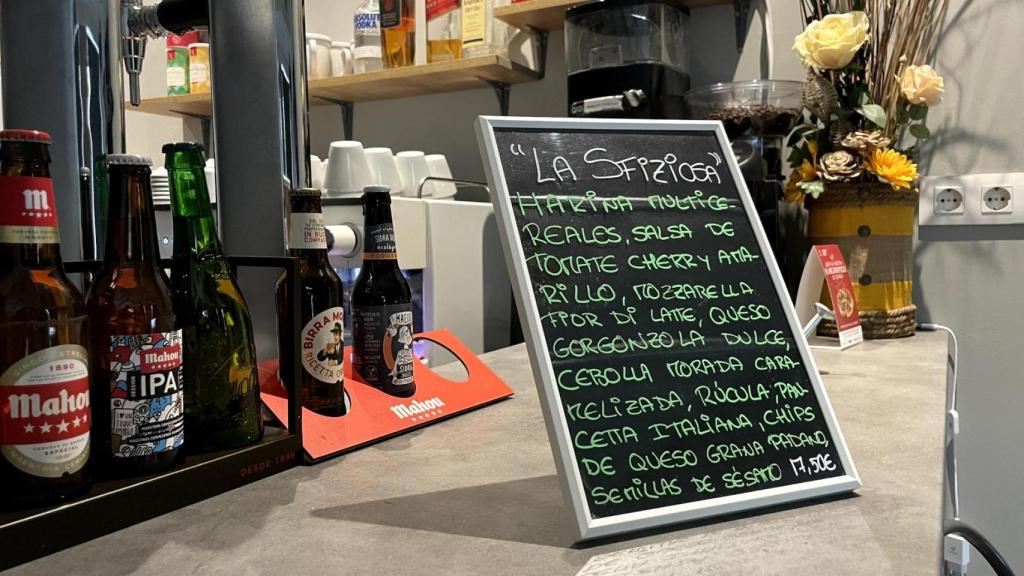 "LA SFIZIOSA"
HARINA MULTICE
REALES, SALSA DE
TOMATE CHERRY AMA
RILLO, MOZZARELLA
FIOR DI LATTE, QUESO
GORGONZOLA DULCE,
CEBOLLA MORADA CARA-
MELIZADA, RÚCULA, PAN-
CETTA ITALIANA, CHIPS
DE QUESO GRANA PADANO,
SEMILLAS DE SÉSAMO 17,50€
ABSOLUT
VODKA
M
1890
Mahou
ESPECIAL
Mahou
IPA
BIRRA MO
RICETTA OR
MAELOC
Mahou
DESDE 1890